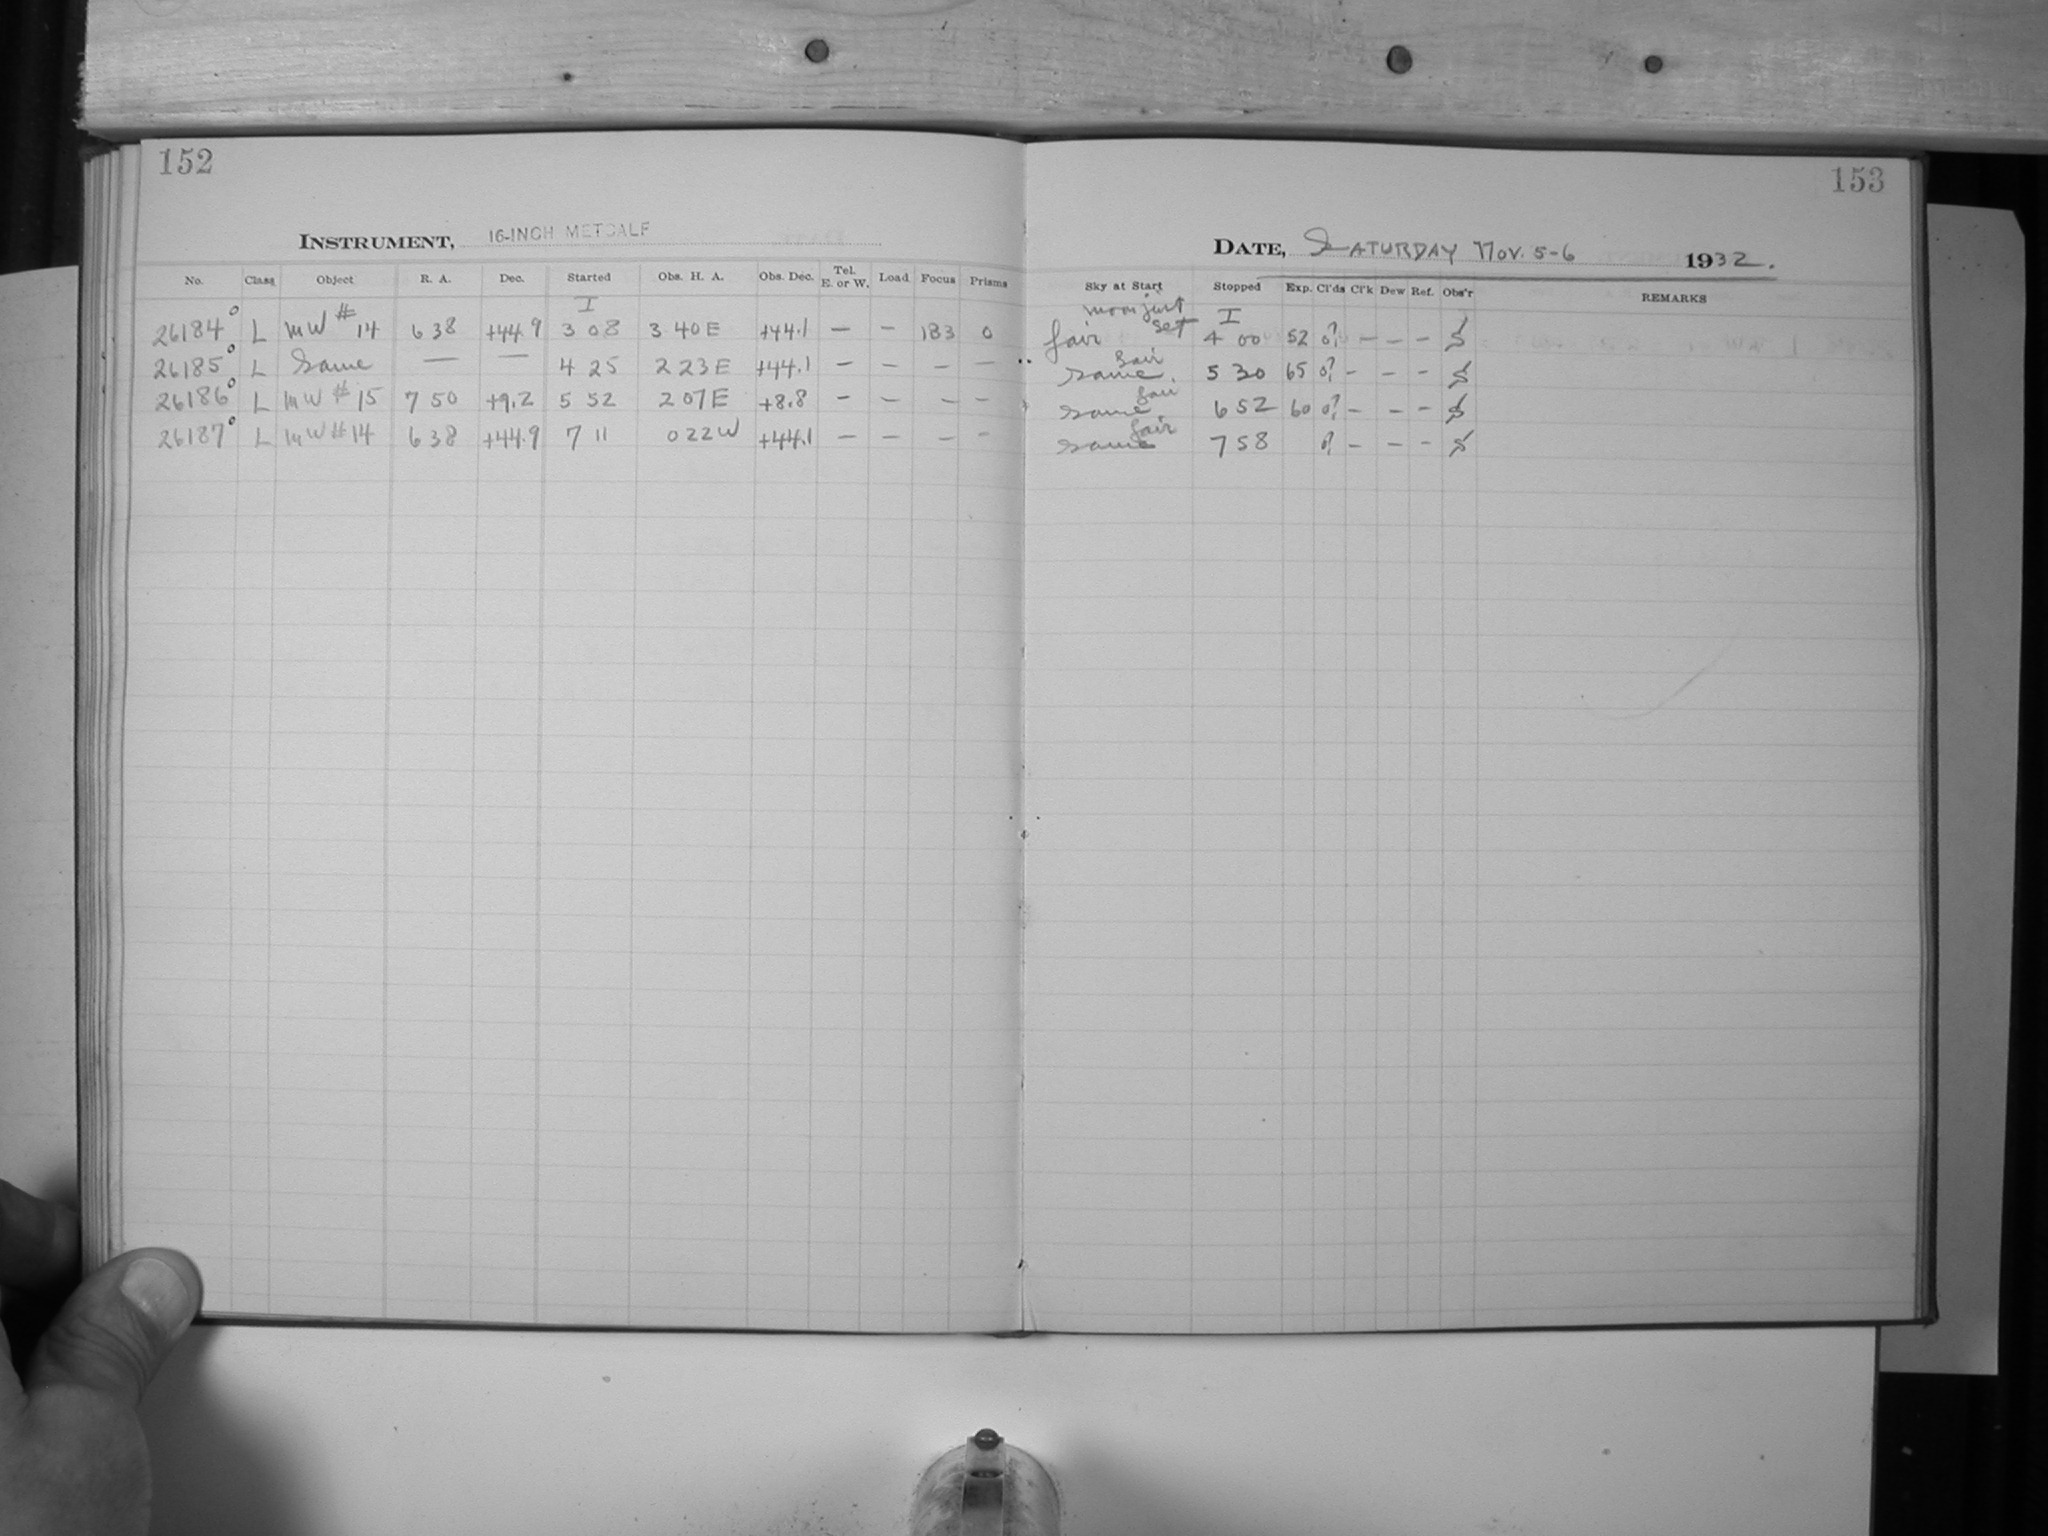 152
INSTRUMENT, 16-INCH METCALF
No. Class Object R. A. Dec. Started Obs. H. A. Obs. Dec. Tel. E. or W. Load Focus Prisms
I
26184° L MW #14 6 38 +44.9 3 08 3 40 E +44.1 — — 183 0
26185° L Same — — 4 25 2 23 E +44.1 — — — —
26186° L MW #15 7 50 +9.2 5 52 2 07 E +8.8 — — — —
26187° L MW #14 6 38 +44.9 7 11 0 22 W +44.1 — — — —
153
DATE, SATURDAY NOV. 5-6 1932.
Sky at Start Stopped Exp. Cl'ds Cl'k Dew Ref. Obs'r REMARKS
moon just
set I
fair 4 00 52 0? — — —
fair
same 5 30 65 0? — — —
fair
same 6 52 60 0? — — —
fair
same 7 58 0? — — —